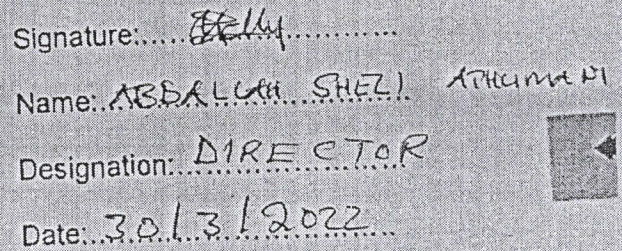 Signature:..............................
Name: ABDALLAH SHEZI ATHUMANI
Designation: DIRECTOR
Date: 30/3/2022